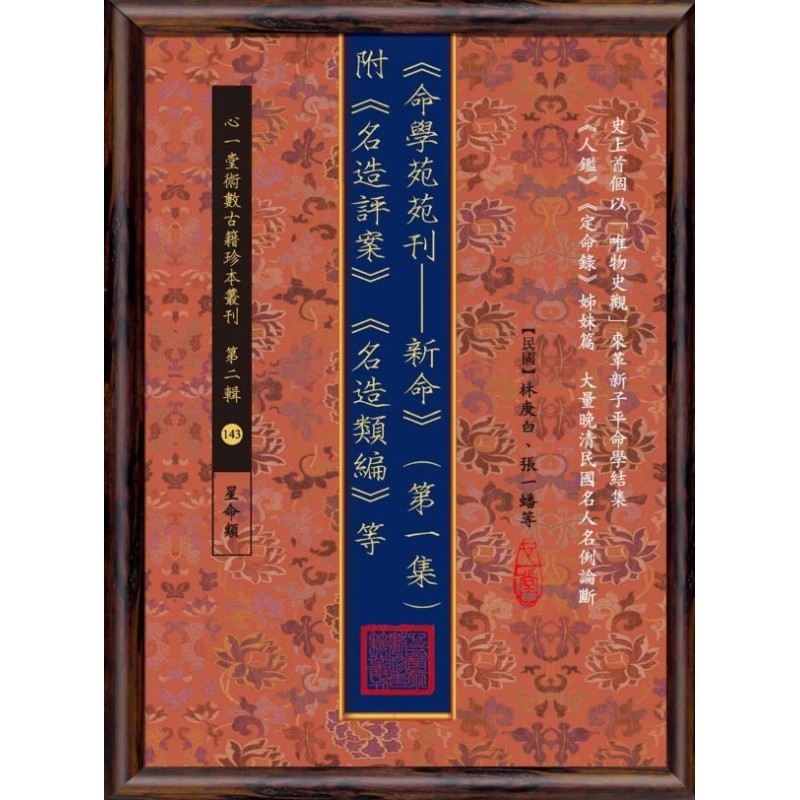 史上首個以「唯物史觀」來革新子平命學結集
《人鑑》《定命錄》姊妹篇 大量晚清民國名人名例論斷
【民國】林庚白、張一蟠等
心一堂
《命學苑苑刊——新命》（第一集）
附《名造評案》《名造類編》等
心一堂術數古籍珍本叢刊 第二輯 143
星命類